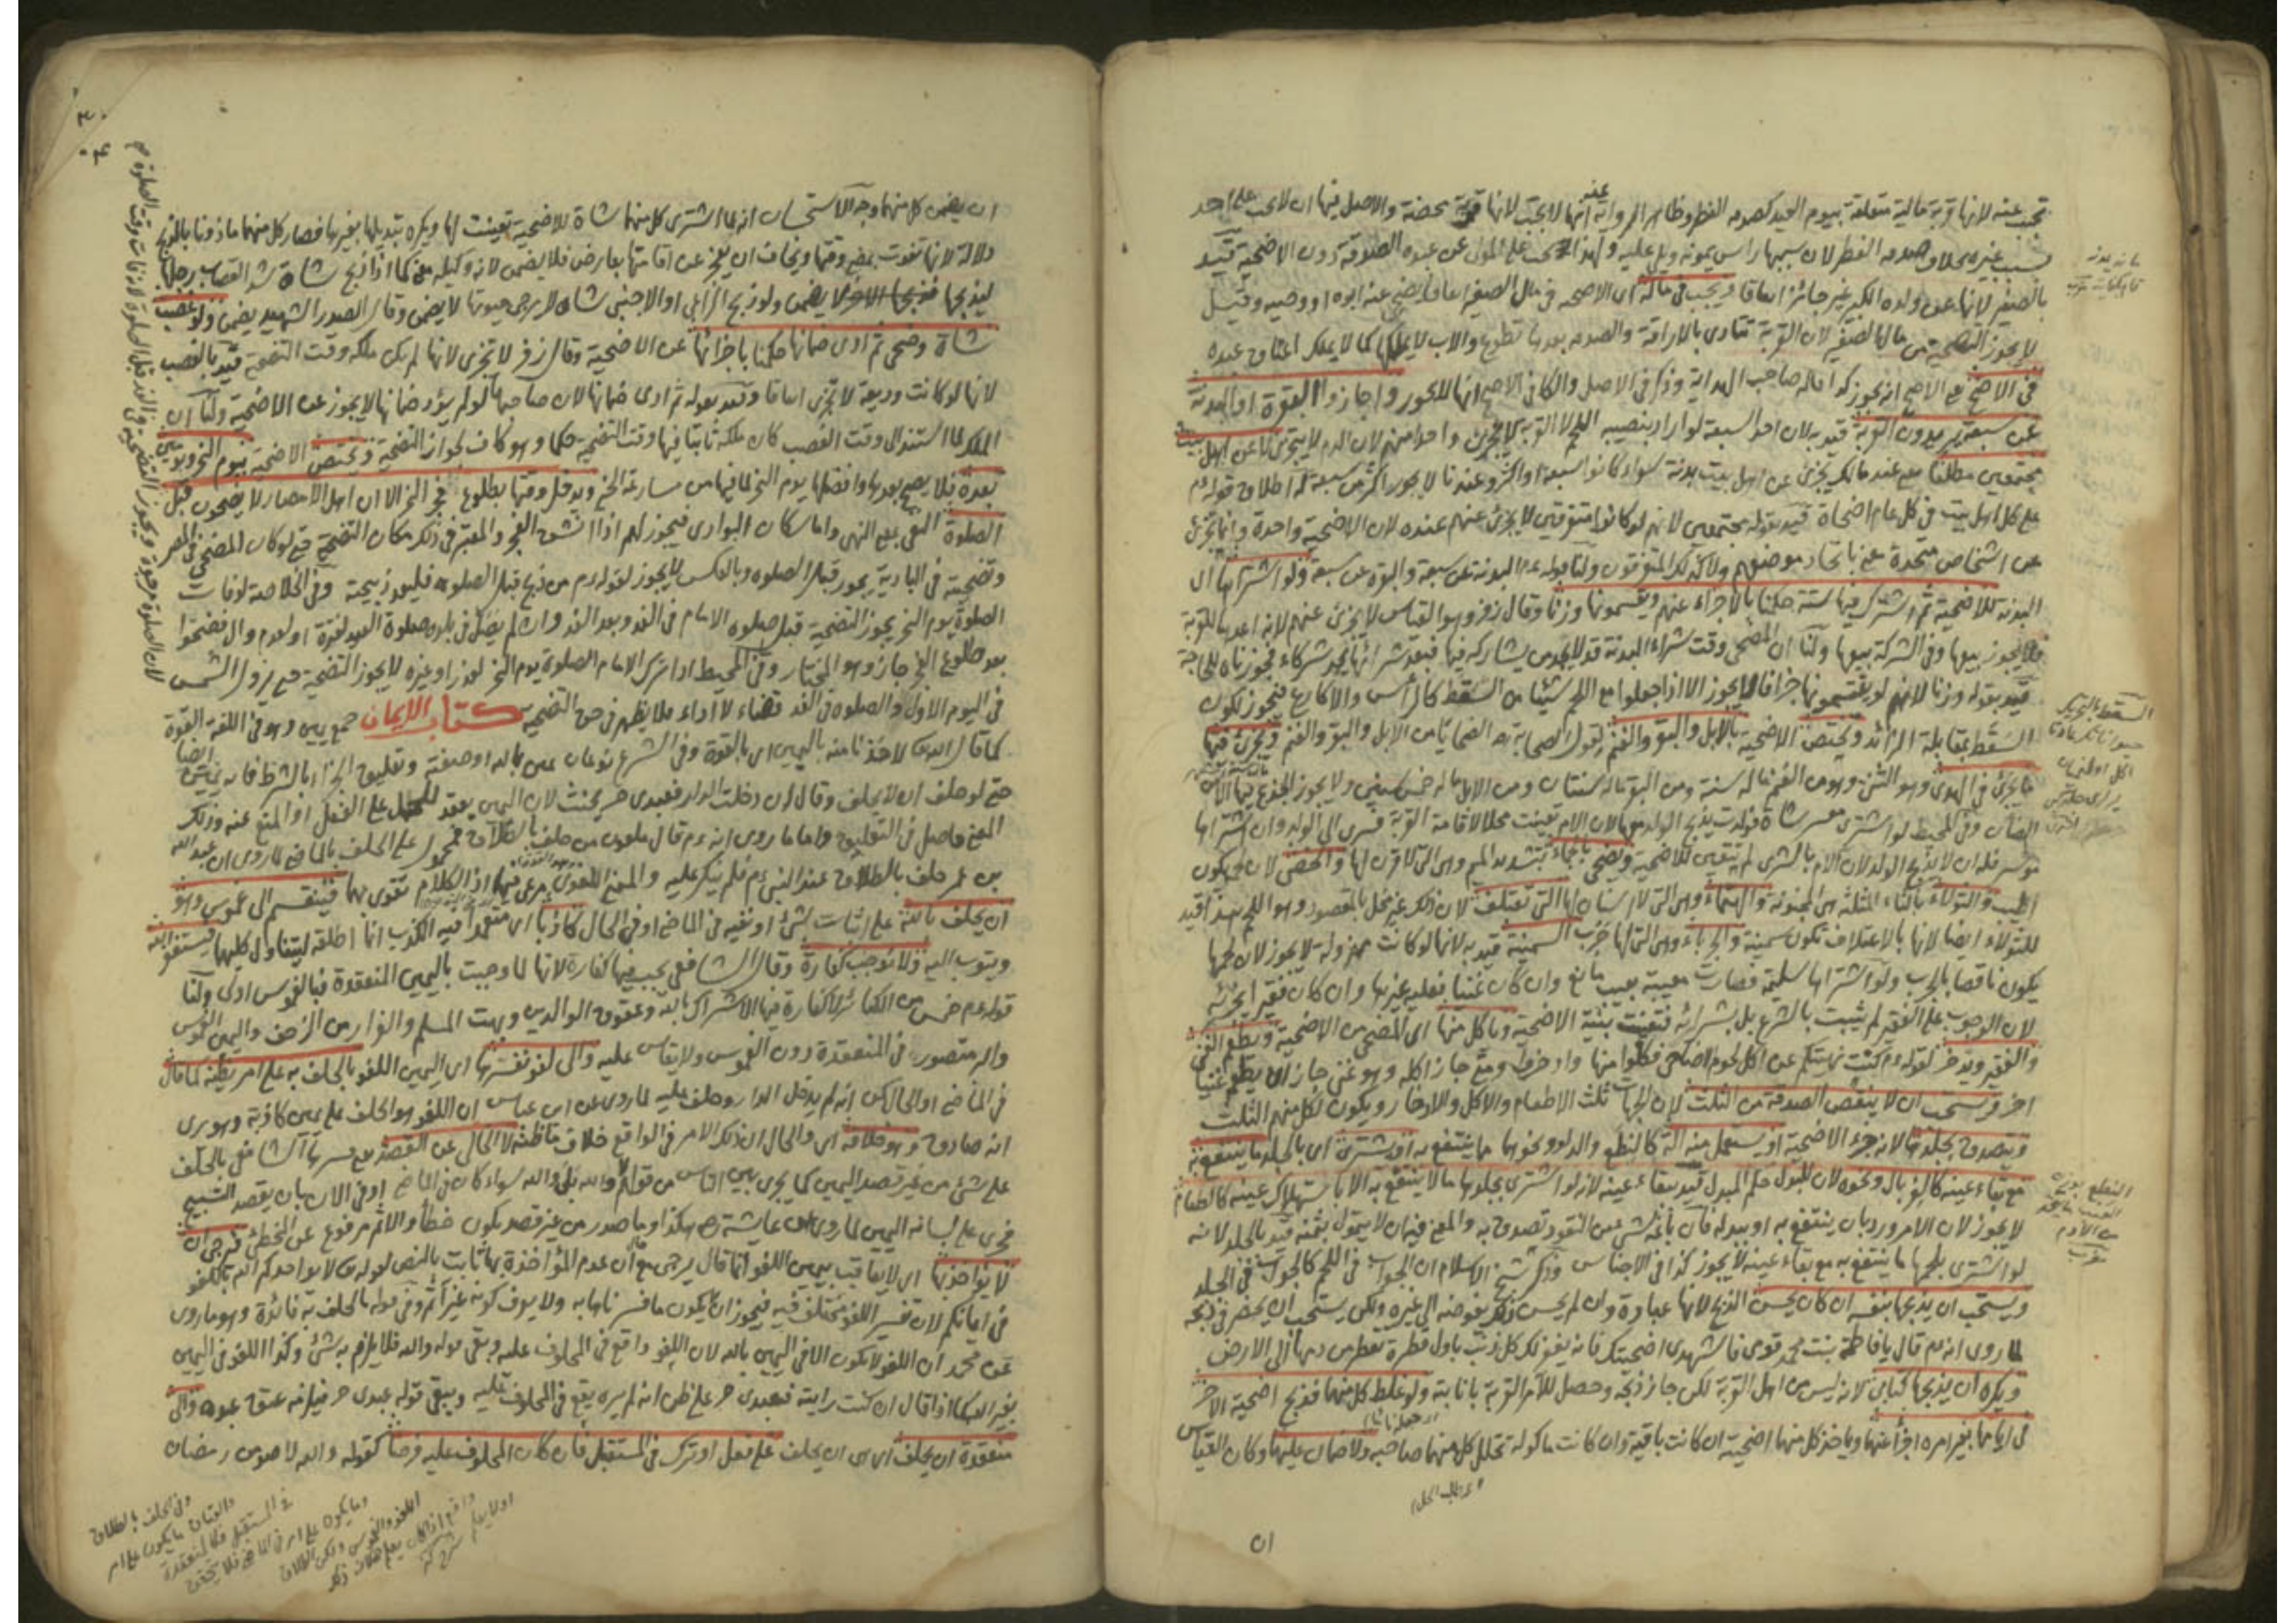 تجب عنه لانها قربة مالية متعلقة بيوم العيد كصدقة الفطر وظاهر الرواية انها لا تجب عنه لانها قربة محضة والاصل فيها ان لا تجب على احد
بسبب غيره بخلاف صدقة الفطر لان سببها راس يمونه ويلي عليه ولهذا تجب على المولى عن عبده الصدقة دون الاضحية قيد
بالصغير لانها عن ولده الكبير غير جائز اتفاقا ويجب في ماله اى الاضحية في مال الصغير اتفاقا يضحى عنه ابوه او وصيه وقيل
لا يجوز التضحية من مال الصغير لان القربة تتادى بالاراقة والصدقة بعدها تطوع والاب لا يملكها كما لا يملك اعتاق عبده
في الاصح مع الاصح انه يجوز كذا قاله صاحب الهداية وذكر في الاصل والكافي الاصح انها لا يجوز واجازوا البقرة او البدنة
عن سبعة يريدون القربة قيد به لان احد السبعة لو اراد بنصيبه اللحم لا القربة لا يجزئ واحدا منهم لان الدم لا يتجزى لا عن اهل بيت
مجتمعين مطلقا مع عند مالك يجزئ عن اهل بيت بدنة سواء كانوا سبعة او اكثر وعندنا لا يجوز اكثر من سبعة له اطلاق قوله عم
على كل اهل بيت في كل عام اضحاة قيد بقوله مجتمعين لانهم لو كانوا متفرقين لا يجزئ عنهم عنده لان الاضحية واحدة وانما تجزئ
عن اشخاص متحدة معنى باتحاد موضعهم ولا كذلك المتفرقون ولنا قوله عم البدنة عن سبعة والبقرة عن سبعة ولو اشتراها اى
البدنة للاضحية ثم اشترك فيها ستة حكمنا بالاجزاء عنهم ويقسمونها وزنا وقال زفر وهو القياس لا يجزئ عنهم لانه اعدها للقربة
فلا يجوز بيعها وفي الشركة بيعها ولنا ان المضحى وقت شراء البدنة قد لا يجد من يشاركه فيها فبعد شرائها يجد شركاء فجوزناه للحاجة
قيد بقوله وزنا لانهم لو يقتسمونها جزافا لا يجوز الا اذا جعلوا مع اللحم شيئا من السقط كالراس والاكارع فيجوز لكون
السقط بمقابلة الزائد ويختص الاضحية بالابل والبقر والغنم لقول الصحابة رضه الضحايا من الابل والبقر والغنم ويجزئ فيها
ما يجزئ في الهدى وهو الثنى وهو من الغنم ما له سنة ومن البقر ما له سنتان ومن الابل ما له خمس سنين ولا يجوز الجذع فيها الا من
الضان وفي المحيط لو اشترى معسر شاة فولدت يذبح الولد معها لان الام تعينت محلا لاقامة القربة فسرى الى الولد وان اشتراها
موسر فله ان لا يذبح الولد لان الام بالشرى لم يتعين للاضحية ويضحى بالجماء بتشديد الميم وهى التى لا قرن لها والخصى لان لحمه يكون
اطيب والثولاء بالثاء المثلثة هى المجنونة والهتماء وهى التى لا اسنان لها التى تعتلف لان ذلك غير مخل بالمقصود وهو اللحم بعد اقيد
للثولاء ايضا لانها بالاعتلاف تكون سمينة والجرباء وهى التى لها جرب السمينة قيد به لانها لو كانت مهزولة لا يجوز لان لحمها
يكون ناقصا بالجرب ولو اشتراها سليمة فصارت معيبة بعيب مانع وان كان غنيا فعليه غيرها وان كان فقيرا يجزئه
لان الوجوب على الفقير لم يثبت بالشرع بل بشرائه فتعينت بنية الاضحية وياكل منها اى المضحى من الاضحية ويطعم الغنى
والفقير ويدخر لقوله عم كنت نهيتكم عن اكل لحوم الاضاحى فكلوا منها وادخروا ومتى جاز اكله وهو غنى جاز ان يطعم غنيا
اخر ويستحب ان لا ينقص الصدقة من الثلث لان الجهات ثلث الاطعام والاكل والادخار ويكون لكل منهم الثلث
ويتصدق بجلدها لانه جزء الاضحية او يستعمل منه الة كالنطع والدلو ونحوها مما ينتفع به او يشترى اى بالجلد ما ينتفع به
مع بقاء عينه كالغربال ونحوه لان للبدل حكم المبدل قيد ببقاء عينه لانه لو اشترى بجلدها ما لا ينتفع به الا باستهلاك عينه كالطعام
لا يجوز لان الامر ورد بان ينتفع به او ببدله فان باعه بشى من النقود تصدق به والمعنى فيه ان لا يتمول بثمنه قيد بالجلد لانه
لو اشترى بلحمها ما ينتفع به مع بقاء عينه لا يجوز كذا في الاجناس وذكر شيخ الاسلام ان الجواب في اللحم كالجواب في الجلد
ويستحب ان يذبحها بنفسه ان كان يحسن الذبح لانها عبادة وان لم يحسن ذلك يفوضه الى غيره ولكن يستحب ان يحضر في ذبحه
لما روى انه عم قال يا فاطمة بنت محمد قومى فاشهدى اضحيتك فانه يغفر لك كل ذنب باول قطرة تقطر من دمها الى الارض
ويكره ان يذبحها كتابى لانه ليس من اهل القربة لكن جاز ذبحه وحصل للامر القربة بانابته ولو غلط كل منهما فذبح اضحية الاخر
في ايامها بغير امره اجزأ عنهما وياخذ كل منهما اضحيته ان كانت باقية وان كانت ماكولة تحلل كل منهما صاحبه ولا ضمان عليهما وكان القياس
اى طلب الحل
السقط بالتحريك
النطع
من الادم
ان يضمن كل منهما وجه الاستحسان انه لما اشترى كل منهما شاة للاضحية تعينت لها ويكره تبديلها بغيرها فصار كل منهما ماذونا بالذبح
دلالة لانها تفوت بمضى وقتها ويخاف ان يعجز عن اقامتها بعارض فلا يضمن لانه وكيله معنى كما اذا ذبح شاة شد القصاب رجلها
ليذبحها فذبحها الاخر لا يضمن ولو ذبح الراعى او الاجنبى شاة لا يرجى حيوتها لا يضمن وقال الصدر الشهيد يضمن ولو غصب
شاة وضحى ثم ادى ضمانها حكمنا باجزائها عن الاضحية وقال زفر لا تجزى لانها لم يكن ملكه وقت التضحية قيد بالغصب
لانها لو كانت وديعة لا تجزى اتفاقا وقيد بقوله ثم ادى ضمانها لان صاحبها لو لم يؤد ضمانها لا يجوز عن الاضحية ولنا ان
الملك لما استند الى وقت الغصب كان ملكه ثابتا فيها وقت التضحية حكما وهو كاف لجواز التضحية ويختص الاضحية بيوم النحر ويومين
بعده فلا يصح بعدها وافضلها يوم النحر لما فيها من مسارعة الخير ويدخل وقتها بطلوع فجر النحر الا ان اهل الامصار لا يضحون قبل
الصلوة واما سكان البوادى فيجوز لهم اذا انشق الفجر والمعتبر في ذلك مكان التضحية حتى لو كان المضحى في المصر
وتضحيته في البادية يجوز قبل الصلوة وبالعكس لا يجوز لقوله عم من ذبح قبل الصلوة فليعد ذبيحته وفي الخلاصة لو فات
الصلوة يوم النحر يجوز التضحية قبل صلوة الامام في الغد وبعد الغد وان لم يصل في بلدة صلوة العيد لفترة او لعدم وال فضحوا
بعد طلوع الفجر جاز وهو المختار وفي المحيط اذا ترك الامام الصلوة يوم النحر لعذر او غيره لا يجوز التضحية حتى تزول الشمس
في اليوم الاول والصلوة في الغد قضاء لا اداء فلا يظهر في حق التضحية كتاب الايمان جمع يمين وهو في اللغة القوة
كما قال الله تعالى لاخذنا منه باليمين اى بالقوة وفي الشرع نوعان يمين بالله او صفته وتعليق الجزاء بالشرط فانه يمين ايضا
حتى لو حلف ان لا يحلف وقال ان دخلت الدار فعبدى حر يحنث لان اليمين يعقد للحمل على الفعل او المنع عنه وذلك
المعنى حاصل في التعليق واما ما روى انه عم قال ملعون من حلف بالطلاق فمحمول على الحلف بالماضى لما روى ان عبد الله
بن عمر حلف بالطلاق عند النبى عم فلم ينكر عليه والمعنى اللغوى مرعى فيها اذ الكلام تقوى بها فينقسم الى غموس وهو
ان يحلف بالله على اثبات شئ او نفيه في الماضى او في الحال كاذبا اى متعمدا فيه الكذب انما اطلقه ليتناول كلها فيستغفر الله
ويتوب اليه ولا نوجب كفارة وقال الشافعى يجب فيها كفارة لانها لما وجبت باليمين المنعقدة فبالغموس اولى ولنا
قوله عم خمس من الكبائر لا كفارة فيها الاشراك بالله وعقوق الوالدين وبهت المسلم والفرار من الزحف واليمين الغموس
والبر متصور في المنعقدة دون الغموس ولا يقاس عليه والى لغو نفسرها اى اليمين اللغو بالحلف به على امر يظنه كما قال
في الماضى او الحال كمن انه لم يدخل الدار وحلف عليه لما روى عن ابن عباس ان اللغو هو الحلف على يمين كاذبة وهو يرى
انه صادق وهو خلافه اى والحال ان ذلك الامر في الواقع خلاف ما ظنه لا الخالى عن القصد مع فسرها الشافعى بالحلف
على شئ من غير قصد اليمين كما يجرى بين الناس من قولهم لا والله بلى والله سواء كان في الماضى او في الان بان يقصد التسبيح
فجرى على لسانه اليمين لما روى عن عايشة رضه هكذا وما صدر من غير قصد يكون خطأ والاثم مرفوع عن الخطئ فنرجى ان
لا يؤاخذ بها اى لا يعاقب بيمين اللغو انما قال يرجى مع ان عدم المؤاخذة بها ثابت بالنص لقوله تعالى لا يؤاخذكم الله باللغو
في ايمانكم لان تفسير اللغو مختلف فيه فيجوز ان يكون ما فسرناها به ولا يعرف كونه غير اثم وفي قوله بالحلف به فائدة وهو ما روى
عن محمد ان اللغو لا يكون الا في اليمين بالله لان اللغو واقع في المحلوف عليه وبقى قوله والله فلا يلزم به شئ وكذا اللغو في اليمين
بغير الله كما اذا قال ان كنت رايته فعبدى حر على ظن انه لم يره يقع في المحلوف عليه ويبقى قوله عبدى حر فيلزمه عتق عبده والى
منعقدة ان يحلف اى هى ان يحلف على فعل او ترك في المستقبل فان كان المحلوف عليه فرضا كقوله والله لاصومن رمضان